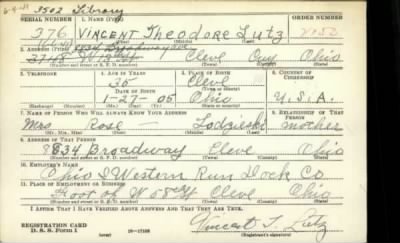 3502 Library
SERIAL NUMBER 1. NAME (Print) ORDER NUMBER
376 VINCENT Theodore Lutz
2. ADDRESS (Print)
8834 Broadway
Cleve Cuy Ohio
3. TELEPHONE 4. AGE IN YEARS 5. PLACE OF BIRTH 6. COUNTRY OF CITIZENSHIP
35 Cleve
DATE OF BIRTH
-27-05 Ohio U.S.A.
7. NAME OF PERSON WHO WILL ALWAYS KNOW YOUR ADDRESS 8. RELATIONSHIP OF THAT PERSON
Mrs Rose — mother
(Mr., Mrs., Miss) (First) (Middle) (Last)
9. ADDRESS OF THAT PERSON
8834 Broadway Cleve Ohio
10. EMPLOYER'S NAME
Ohio & Western Dock Co
11. PLACE OF EMPLOYMENT OR BUSINESS
Foot of W 58 St Cleve Ohio
I AFFIRM THAT I HAVE VERIFIED ABOVE ANSWERS AND THAT THEY ARE TRUE.
REGISTRATION CARD
D. S. S. Form 1 (over) Vincent T. Lutz
(Registrant's signature)